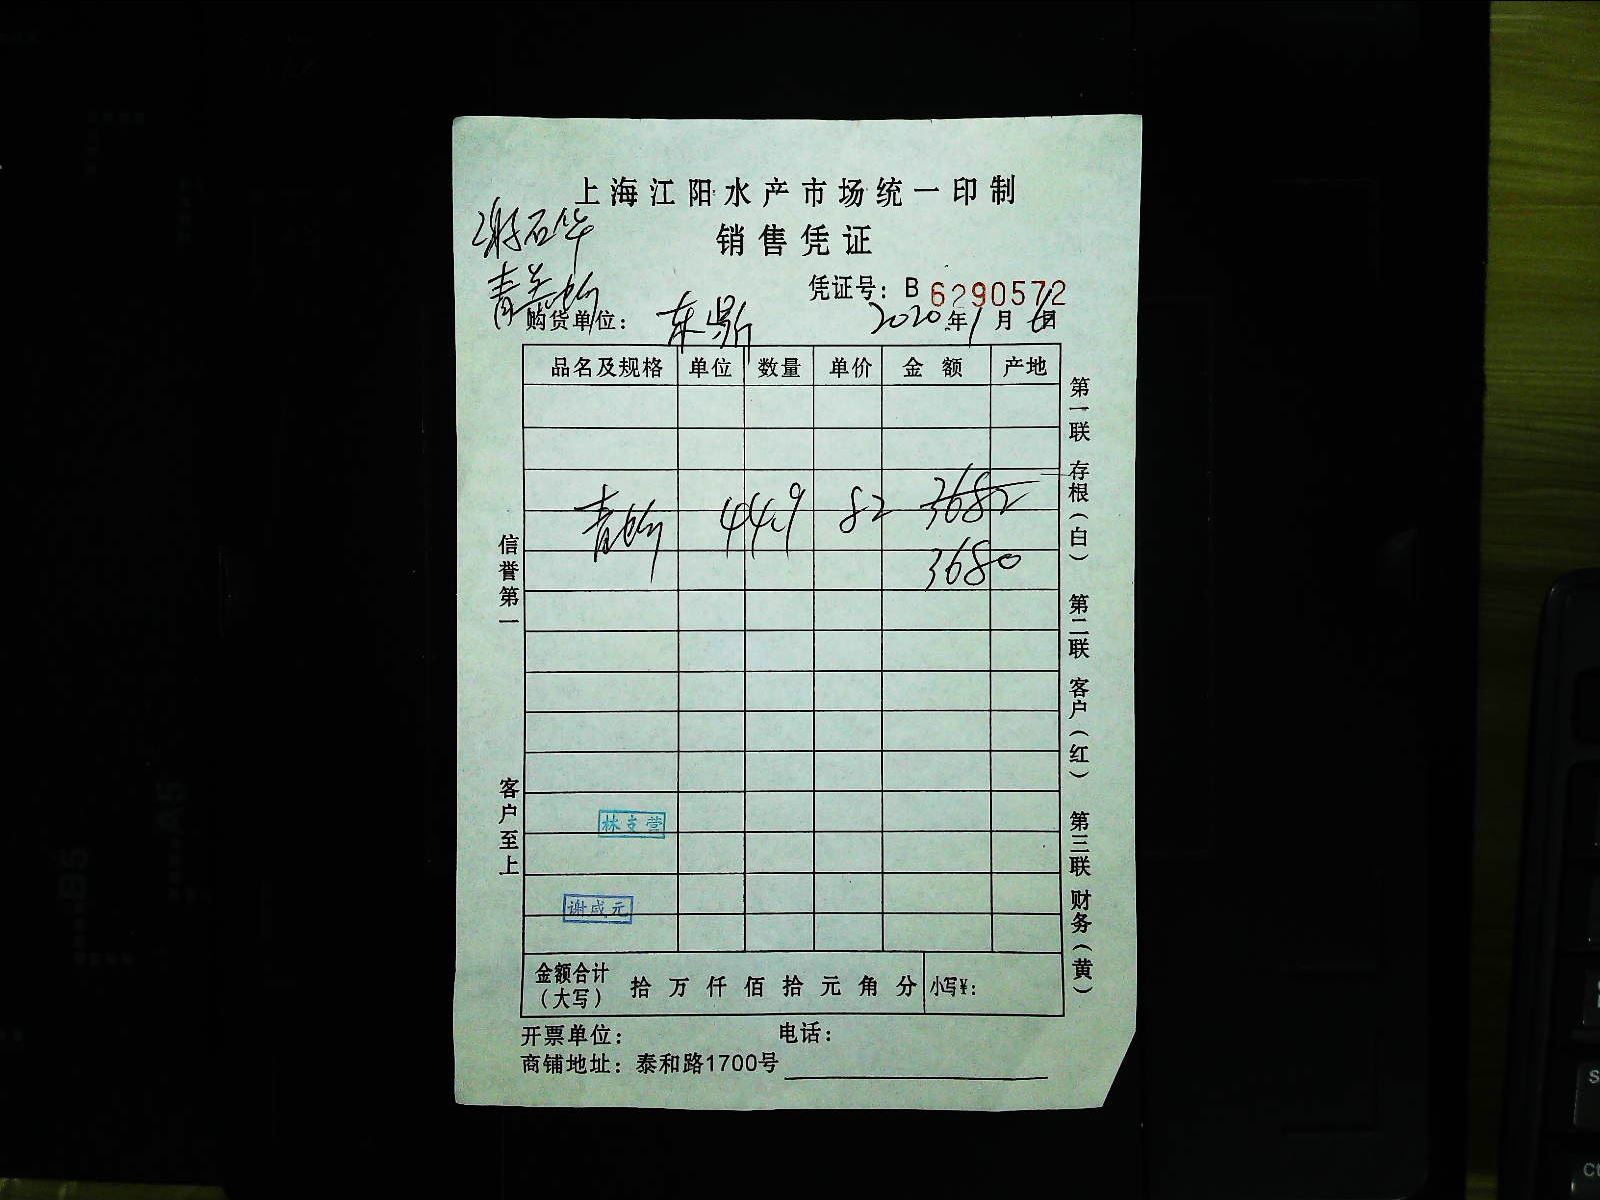 上海江阳水产市场统一印制
销售凭证
谢石华
凭证号：B 6290572
购货单位：东鼎 2020年1月6日
品名及规格 单位 数量 单价 金额 产地
青 44.9 82 3682
3680
林支营
谢咸元
金额合计（大写） 拾万仟佰拾元角分 小写¥：
开票单位： 电话：
商铺地址：泰和路1700号
信誉第一 客户至上
第一联 存根（白） 第二联 客户（红） 第三联 财务（黄）
A5
B5